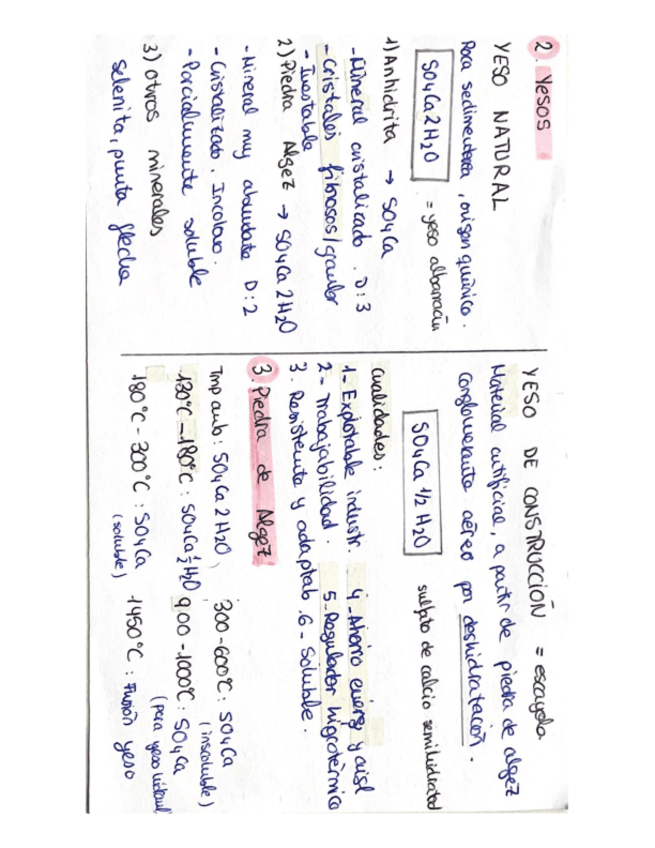 2. YESOS
YESO NATURAL
Roca sedimentaria, origen químico.
SO4Ca2H2O = yeso albarracín
1) Anhidrita → SO4Ca
- Mineral cristalizado. D:3
- Cristales fibrosos/granular
- Inestable
2) Piedra Algez → SO4Ca 2H2O
- Mineral muy abundate D:2
- Cristalizado. Incoloro.
- Parcialmente soluble
3) Otros minerales
Selenita, punta flecha
YESO DE CONSTRUCCIÓN = escayola.
Material artificial, a partir de piedra de algez
conglomerante aéreo por deshidratación.
SO4Ca 1/2 H2O sulfato de calcio semihidratad
Cualidades:
1- Explotable industr. 4- Ahorro energ y aisl
2- Trabajabilidad. 5- Regulador higrotérmico
3. Resistente y adaptab. 6- Soluble.
3. Piedra de Algez
Tmp amb: SO4Ca 2 H2O, 300-600ºC: SO4Ca
(insoluble)
130ºC-180ºC: SO4Ca 1/2 H2O 900-1000ºC: SO4Ca
180ºC-300ºC: SO4Ca
(soluble)
1450ºC: Fusión yeso